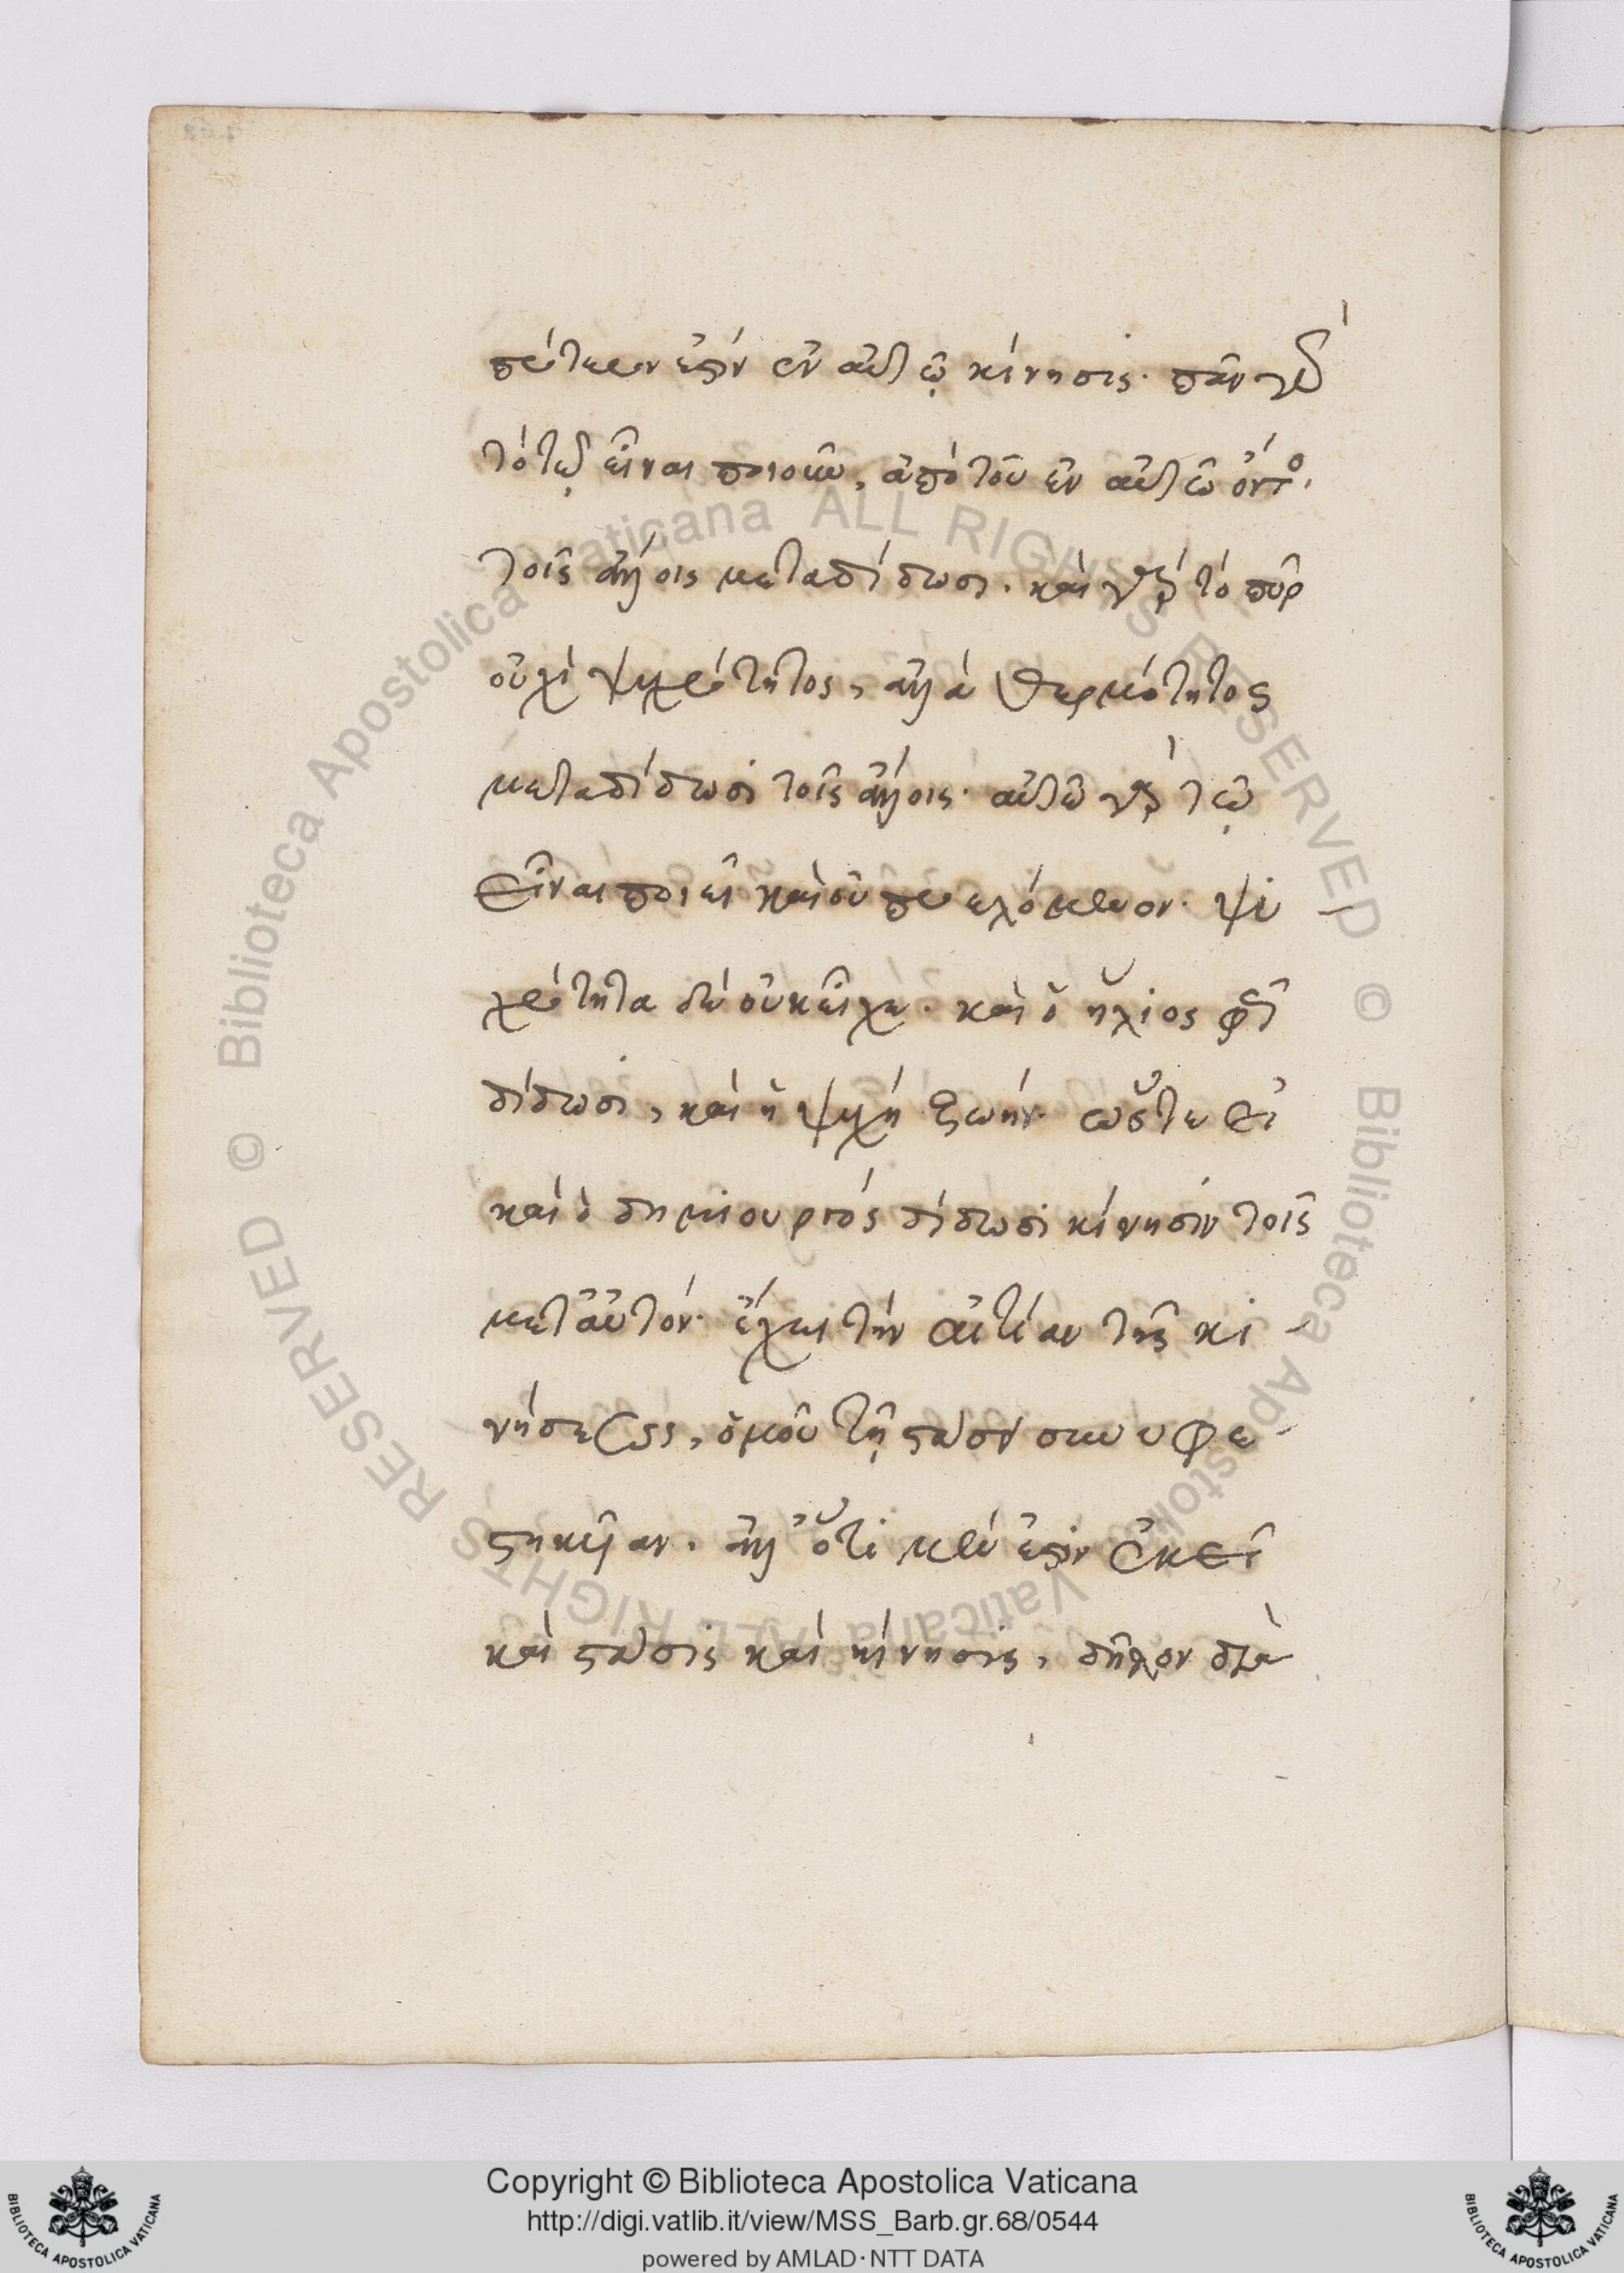 πρότερόν ἐστιν ἐν αὐτῷ κίνησις· πᾶν γὰρ
τὸ τῷ εἶναι ποιοῦν, ἀπὸ τοῦ ἐν αὐτῷ ὄντος
τοῖς ἄλλοις μεταδίδωσι. καὶ γὰρ τὸ πῦρ
οὐχὶ ψυχρότητος, ἀλλὰ θερμότητος
μεταδίδωσι τοῖς ἄλλοις· αὐτῷ γὰρ τῷ
εἶναι ποιεῖ καὶ οὐ προελόμενον· ψυ
χρότητα δὲ οὐκ εἶχε. καὶ ὁ ἥλιος φῶς
δίδωσι, καὶ ἡ ψυχὴ ζωήν· ὥστε εἰ
καὶ ὁ δημιουργὸς δίδωσι κίνησιν τοῖς
μετ' αὐτόν· ἔχει τὴν αἰτίαν τῆς κι
νήσεως, ὁμοῦ τῇ στάσει συνυφε
στηκυῖαν. ἀλλ' ὅτι μέν ἐστιν ἐκεῖ
καὶ στάσις καὶ κίνησις, δῆλον διὰ
Biblioteca Apostolica Vaticana ALL RIGHTS RESERVED ©
Biblioteca Apostolica Vaticana ALL RIGHTS RESERVED ©
Copyright © Biblioteca Apostolica Vaticana
http://digi.vatlib.it/view/MSS_Barb.gr.68/0544
powered by AMLAD·NTT DATA
BIBLIOTECA APOSTOLICA VATICANA
BIBLIOTECA APOSTOLICA VATICANA